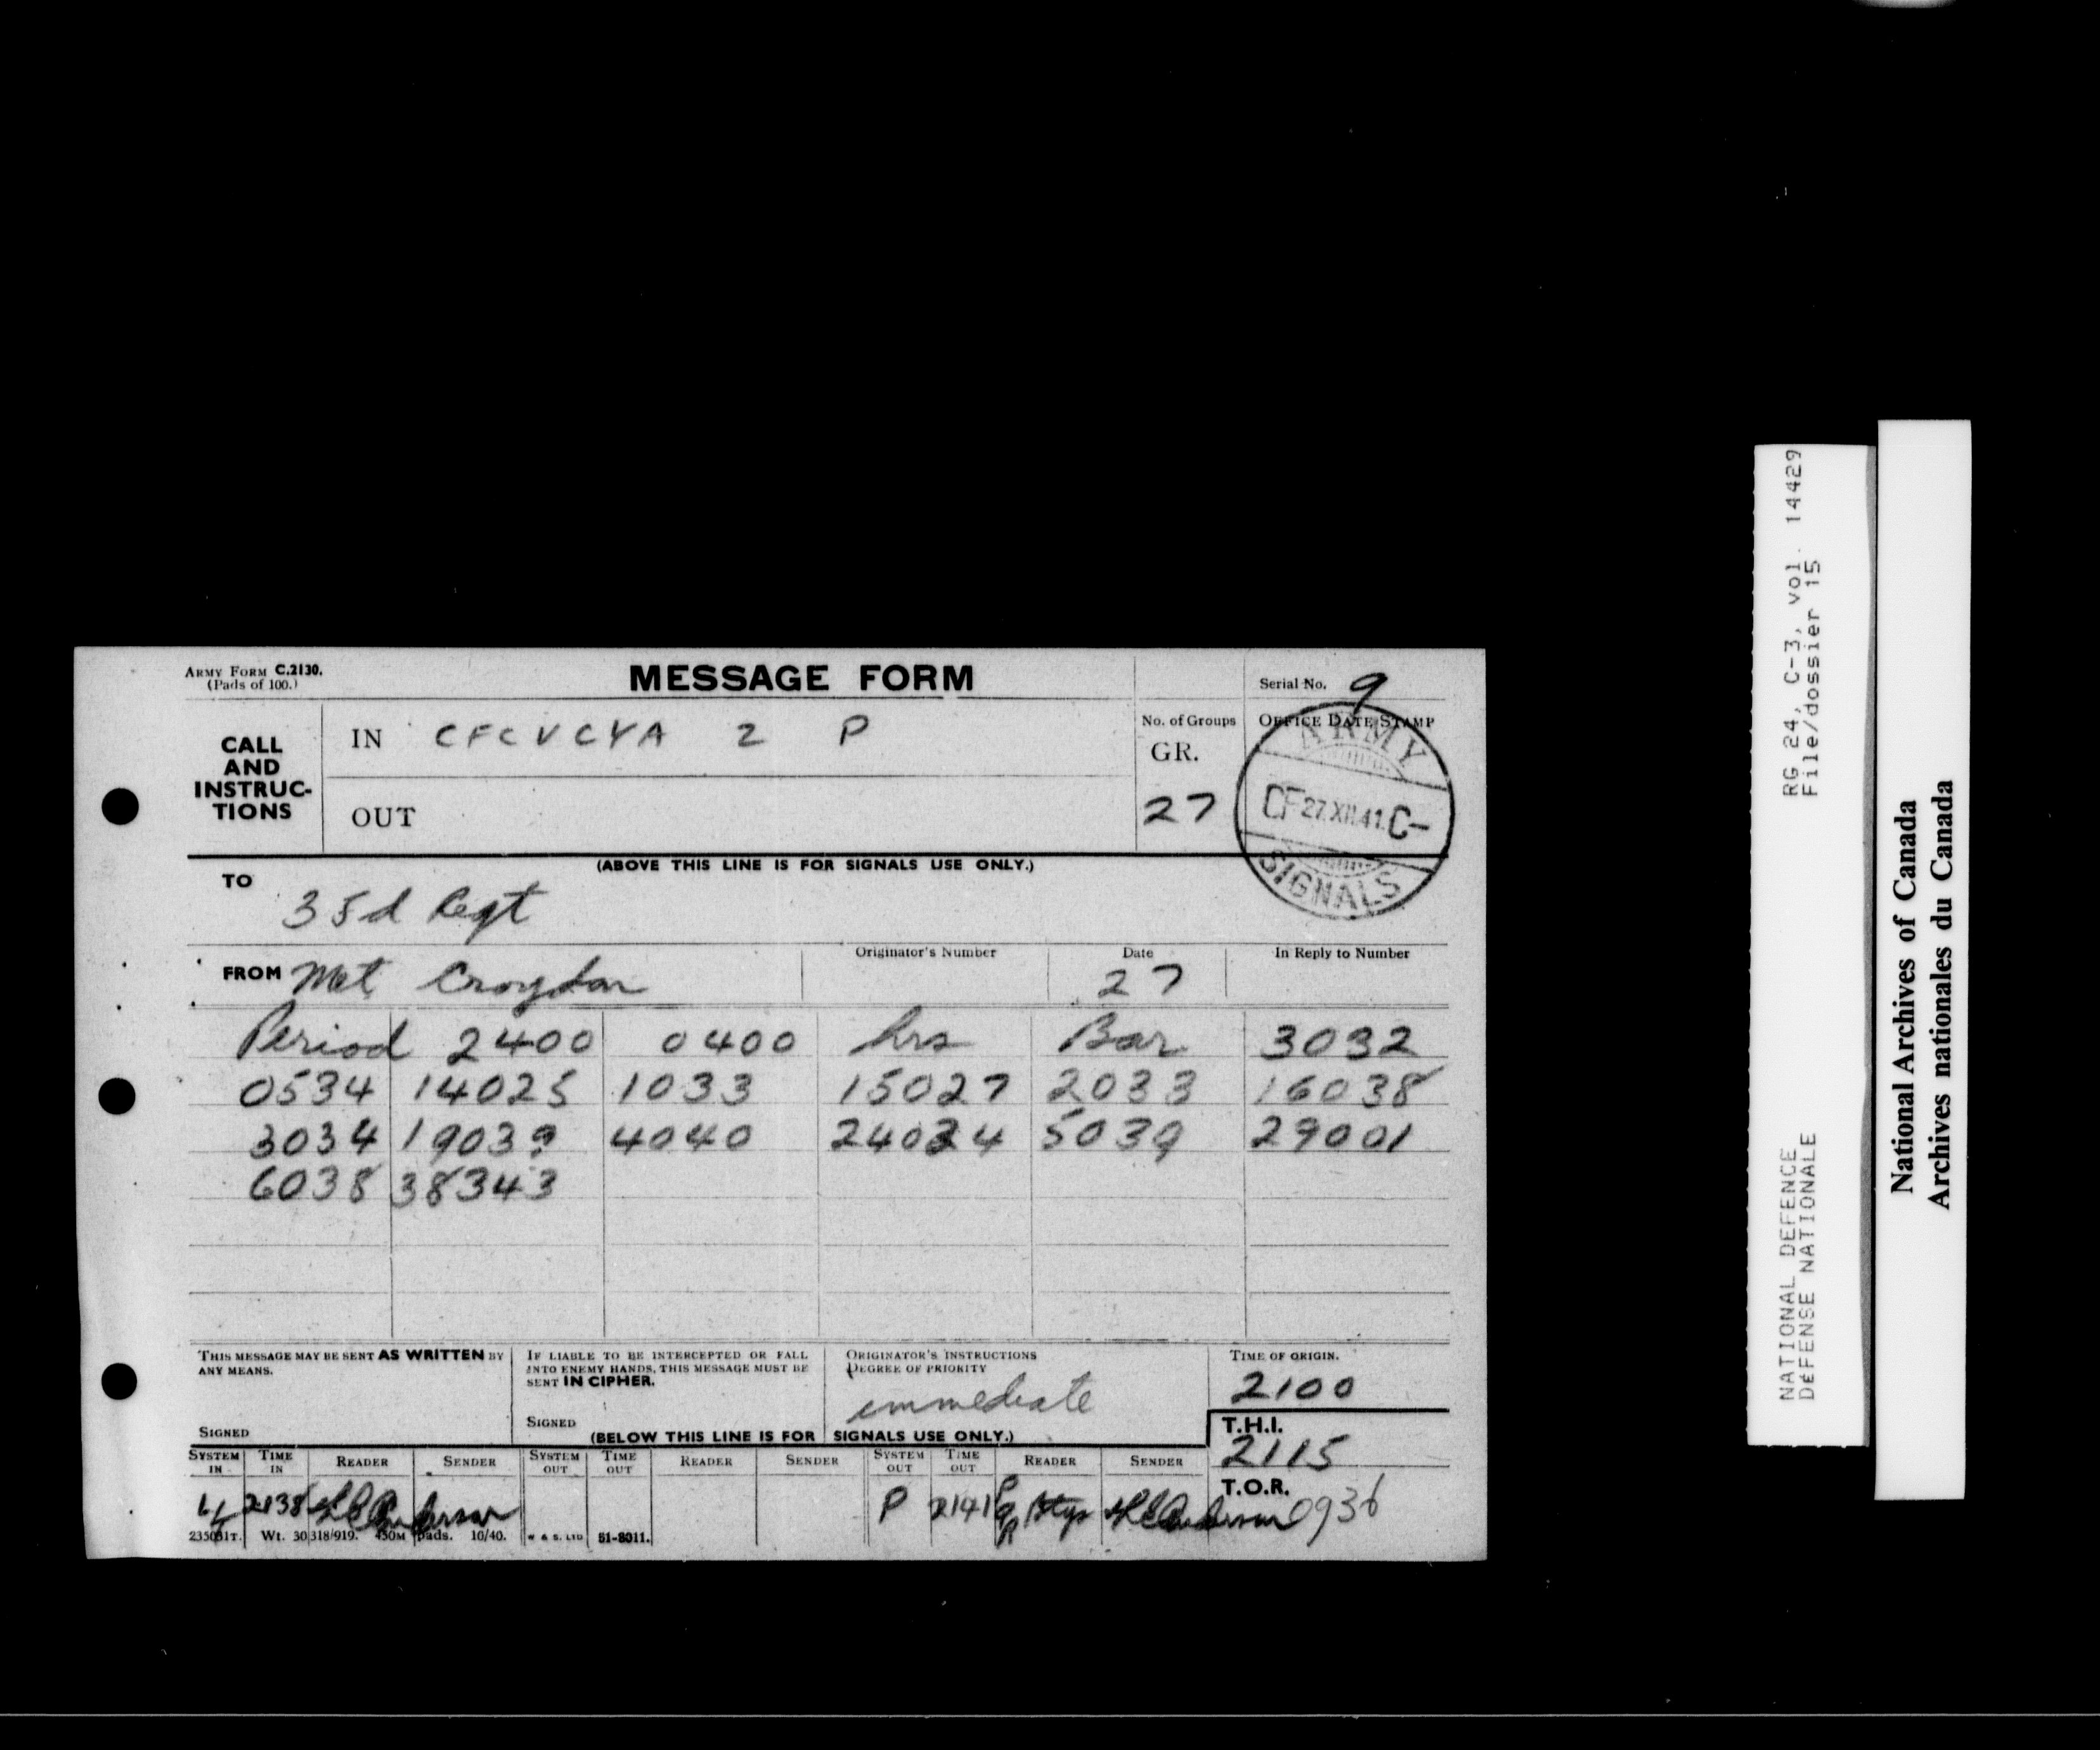 ARMY FORM C.2130.
(Pads of 100.)
MESSAGE FORM
Serial No. 9
CALL AND INSTRUC-TIONS
IN CFCVCYA 2 P
OUT
No. of Groups
GR.
27
OFFICE DATE STAMP
ARMY
CF 27.XII.41. C-
SIGNALS
(ABOVE THIS LINE IS FOR SIGNALS USE ONLY.)
TO
3 Fd Regt
FROM Met Croydon
Originator's Number
Date
27
In Reply to Number
Period 2400 0400 hrs Bar 3032
0534 14025 1033 15027 2033 16038
3034 19039 4040 24034 5039 29001
6038 38343
THIS MESSAGE MAY BE SENT AS WRITTEN BY
ANY MEANS.
SIGNED
IF LIABLE TO BE INTERCEPTED OR FALL
INTO ENEMY HANDS, THIS MESSAGE MUST BE
SENT IN CIPHER.
SIGNED
ORIGINATOR'S INSTRUCTIONS
DEGREE OF PRIORITY
immediate
TIME OF ORIGIN.
2100
(BELOW THIS LINE IS FOR SIGNALS USE ONLY.)
T.H.I.
2115
SYSTEM IN TIME IN READER SENDER SYSTEM OUT TIME OUT READER SENDER SYSTEM OUT TIME OUT READER SENDER
T.O.R.
2138 P 2141 0936
235081T. Wt. 30318/919. 450M pads. 10/40. W & S. LTD 51-8011.
RG 24, C-3, vol. 14429
File/dossier 15
NATIONAL DEFENCE
DÉFENSE NATIONALE
National Archives of Canada
Archives nationales du Canada